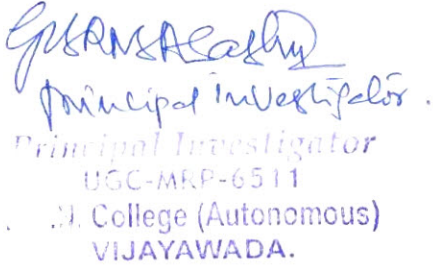 Principal Investigator.
Principal Investigator
UGC-MRP-6511
College (Autonomous)
VIJAYAWADA.